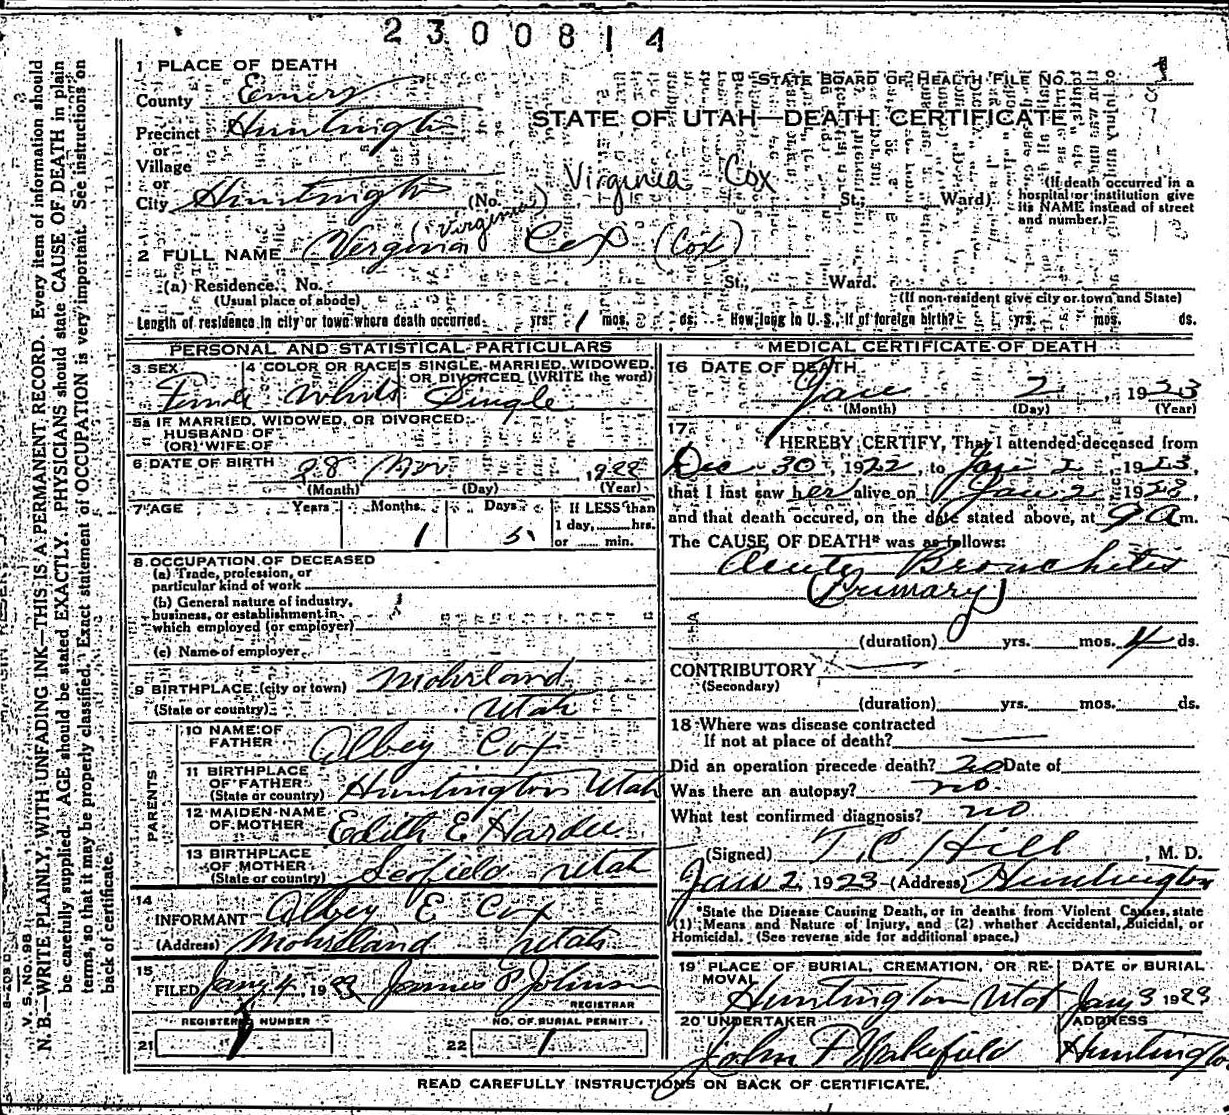 2300814
1 PLACE OF DEATH
STATE BOARD OF HEALTH FILE NO. 1
County Emery
STATE OF UTAH—DEATH CERTIFICATE
Precinct Huntington
or
Village
or
City Huntington (No. Virginia Cox St.; Ward)
(If death occurred in a hospital or institution give its NAME instead of street and number.)
(Virginia)
2 FULL NAME Verginia Cox (Cox)
(a) Residence. No. St., Ward.
(Usual place of abode) (If non-resident give city or town and State)
Length of residence in city or town where death occurred yrs. 1 mos. ds. How long in U. S., if of foreign birth? yrs. mos. ds.
PERSONAL AND STATISTICAL PARTICULARS
3 SEX 4 COLOR OR RACE 5 SINGLE, MARRIED, WIDOWED, OR DIVORCED (WRITE the word)
Female White Single
5a IF MARRIED, WIDOWED, OR DIVORCED
HUSBAND OF
(OR) WIFE OF
6 DATE OF BIRTH 28 Nov , 1922
(Month) (Day) (Year)
7 AGE Years Months Days If LESS than
1 5 1 day, hrs.
or min.
8 OCCUPATION OF DECEASED
(a) Trade, profession, or
particular kind of work
(b) General nature of industry,
business, or establishment in
which employed (or employer)
(c) Name of employer
9 BIRTHPLACE (city or town) Mohrland
(State or country) Utah
PARENTS
10 NAME OF FATHER Albey Cox
11 BIRTHPLACE OF FATHER (State or country) Huntington Utah
12 MAIDEN NAME OF MOTHER Edith E Hardee
13 BIRTHPLACE OF MOTHER (State or country) Scofield Utah
14 INFORMANT Albey E Cox
(Address) Mohrland Utah
15 FILED Jany 4, 1923 James P Johnson
REGISTRAR
REGISTERED NUMBER NO. OF BURIAL PERMIT
21 1 22 1
MEDICAL CERTIFICATE OF DEATH
16 DATE OF DEATH
Jan 2 , 1923
(Month) (Day) (Year)
17
I HEREBY CERTIFY, That I attended deceased from
Dec 30, 1922, to Jan 2, 1923,
that I last saw her alive on Jan 2 1923,
and that death occured, on the date stated above, at 9 a m.
The CAUSE OF DEATH* was as follows:
Acute Bronchites
(Primary)
(duration) yrs. mos. 4 ds.
CONTRIBUTORY
(Secondary)
(duration) yrs. mos. ds.
18 Where was disease contracted
If not at place of death?
Did an operation precede death? no Date of
Was there an autopsy? no
What test confirmed diagnosis? no
(Signed) T. C. Hill , M. D.
Jan 2, 1923 (Address) Huntington
*State the Disease Causing Death, or in deaths from Violent Causes, state
(1) Means and Nature of Injury, and (2) whether Accidental, Suicidal, or
Homicidal. (See reverse side for additional space.)
19 PLACE OF BURIAL, CREMATION, OR REMOVAL DATE OF BURIAL
Huntington Utah Jany 3 1923
20 UNDERTAKER ADDRESS
John F Wakefield Huntington
READ CAREFULLY INSTRUCTIONS ON BACK OF CERTIFICATE.
V. S. NO. 98
N. B.—WRITE PLAINLY, WITH UNFADING INK—THIS IS A PERMANENT RECORD. Every item of information should
be carefully supplied. AGE should be stated EXACTLY. PHYSICIANS should state CAUSE OF DEATH in plain
terms, so that it may be properly classified. Exact statement of OCCUPATION is very important. See instructions on
back of certificate.